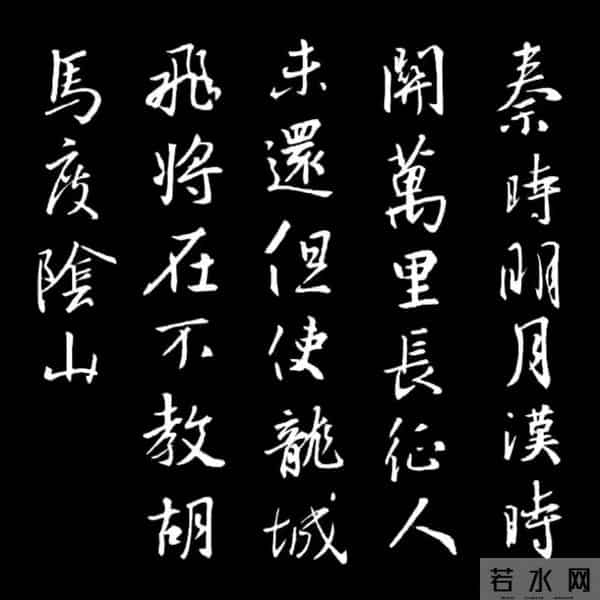 秦時明月漢時
關萬里長征人
未還但使龍城
飛將在不教胡
馬度陰山
若水网